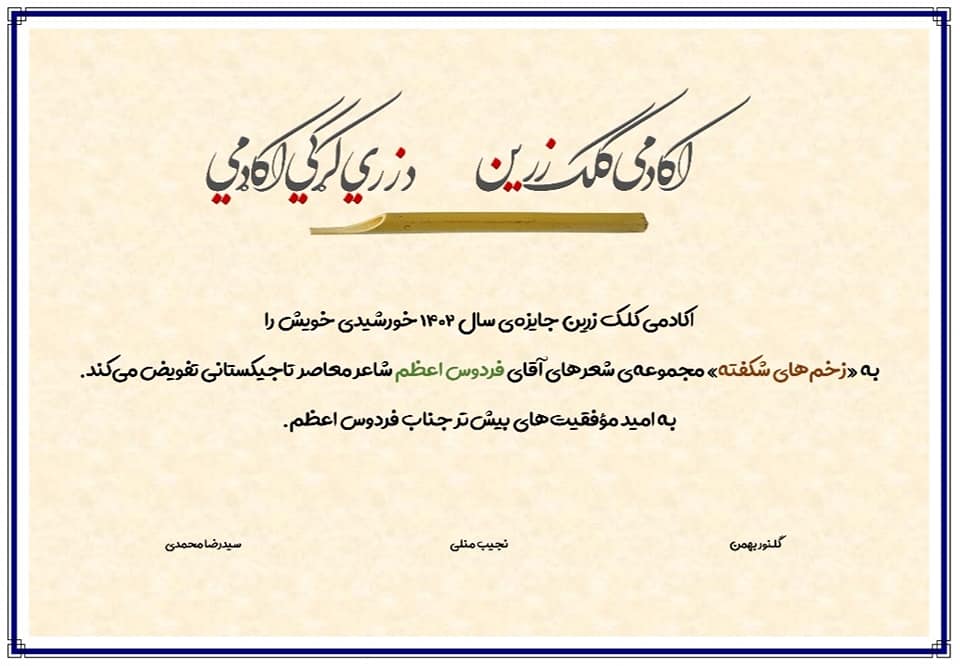 اکادمی کلک زرین
د زري کرګي اکاډمي
اکادمی کلک زرین جایزه‌ی سال ۱۴۰۲ خورشیدی خویش را
به «زخم‌های شکفته» مجموعه‌ی شعرهای آقای فردوس اعظم شاعر معاصر تاجیکستانی تفویض می‌کند.
به امید مؤفقیت‌های بیش‌تر جناب فردوس اعظم.
گلنور بهمن
نجیب منلی
سیدرضا محمدی